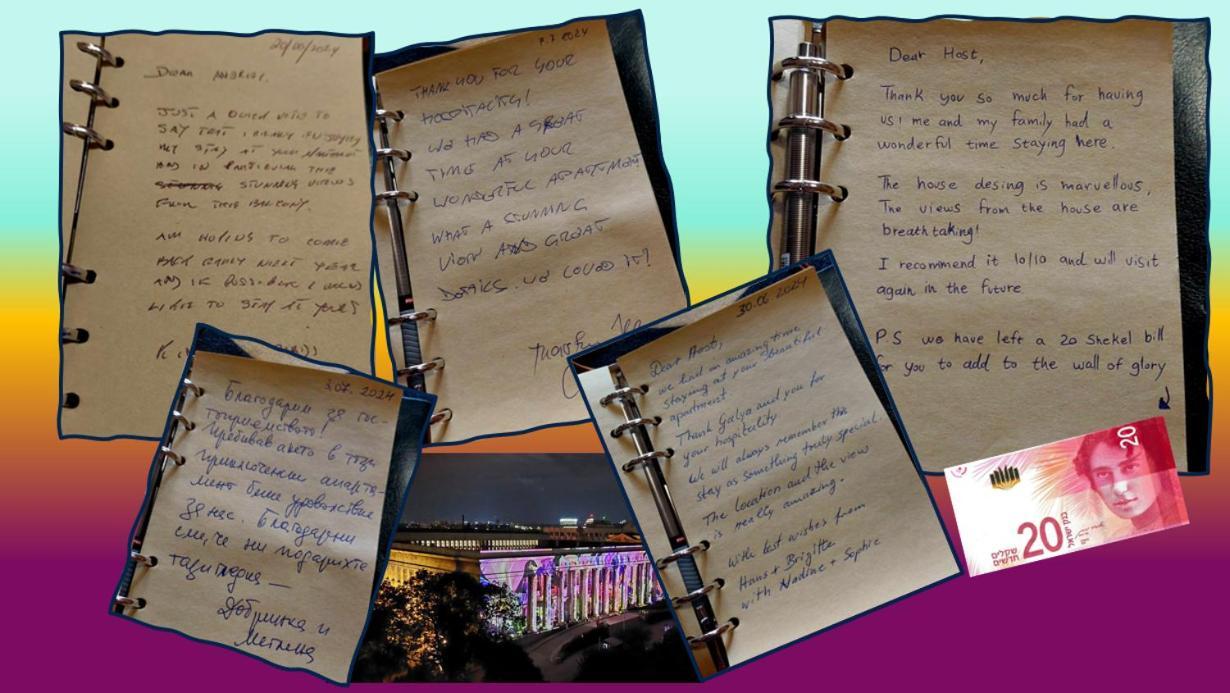 20/06/2024
JUST A QUICK NOTE TO
SAY THAT I REALLY ENJOYED
MY STAY AT YOUR
AND IN PARTICULAR THE
STUNNING VIEWS
FROM THE BALCONY.
AM HOPING TO COME
BACK EARLY NEXT YEAR
AND IF POSSIBLE I WOULD
LIKE TO STAY AT YOURS
7.7.2024
THANK YOU FOR YOUR
HOSPITALITY!
WE HAD A GREAT
TIME AT YOUR
WONDERFUL APARTMENT.
WHAT A STUNNING
VIEW AND GREAT
WE LOVED IT!
Dear Host,
Thank you so much for having
us! me and my family had a
wonderful time staying here.
The house desing is marvellous,
The views from the house are
breathtaking!
I recommend it 10/10 and will visit
again in the future
P.S we have left a 20 shekel bill
for you to add to the wall of glory
3.07.2024
Благодарим за гос-
топриемството!
Пребиваването в този
приключенски апарта-
мент беше удоволствие
за нас. Благодарни
сме, че ни подарихте
тази гледка —
Добринка и
30.06.2024
Dear Host,
we had an amazing time
staying at your beautiful
apartment.
Thank Galya and you for
your hospitality
We will always remember this
stay as something truly special.
The location and the view
is really amazing.
With best wishes from
Hans + Brigitte
with Nadine + Sophie
20
20
שקלים
חדשים